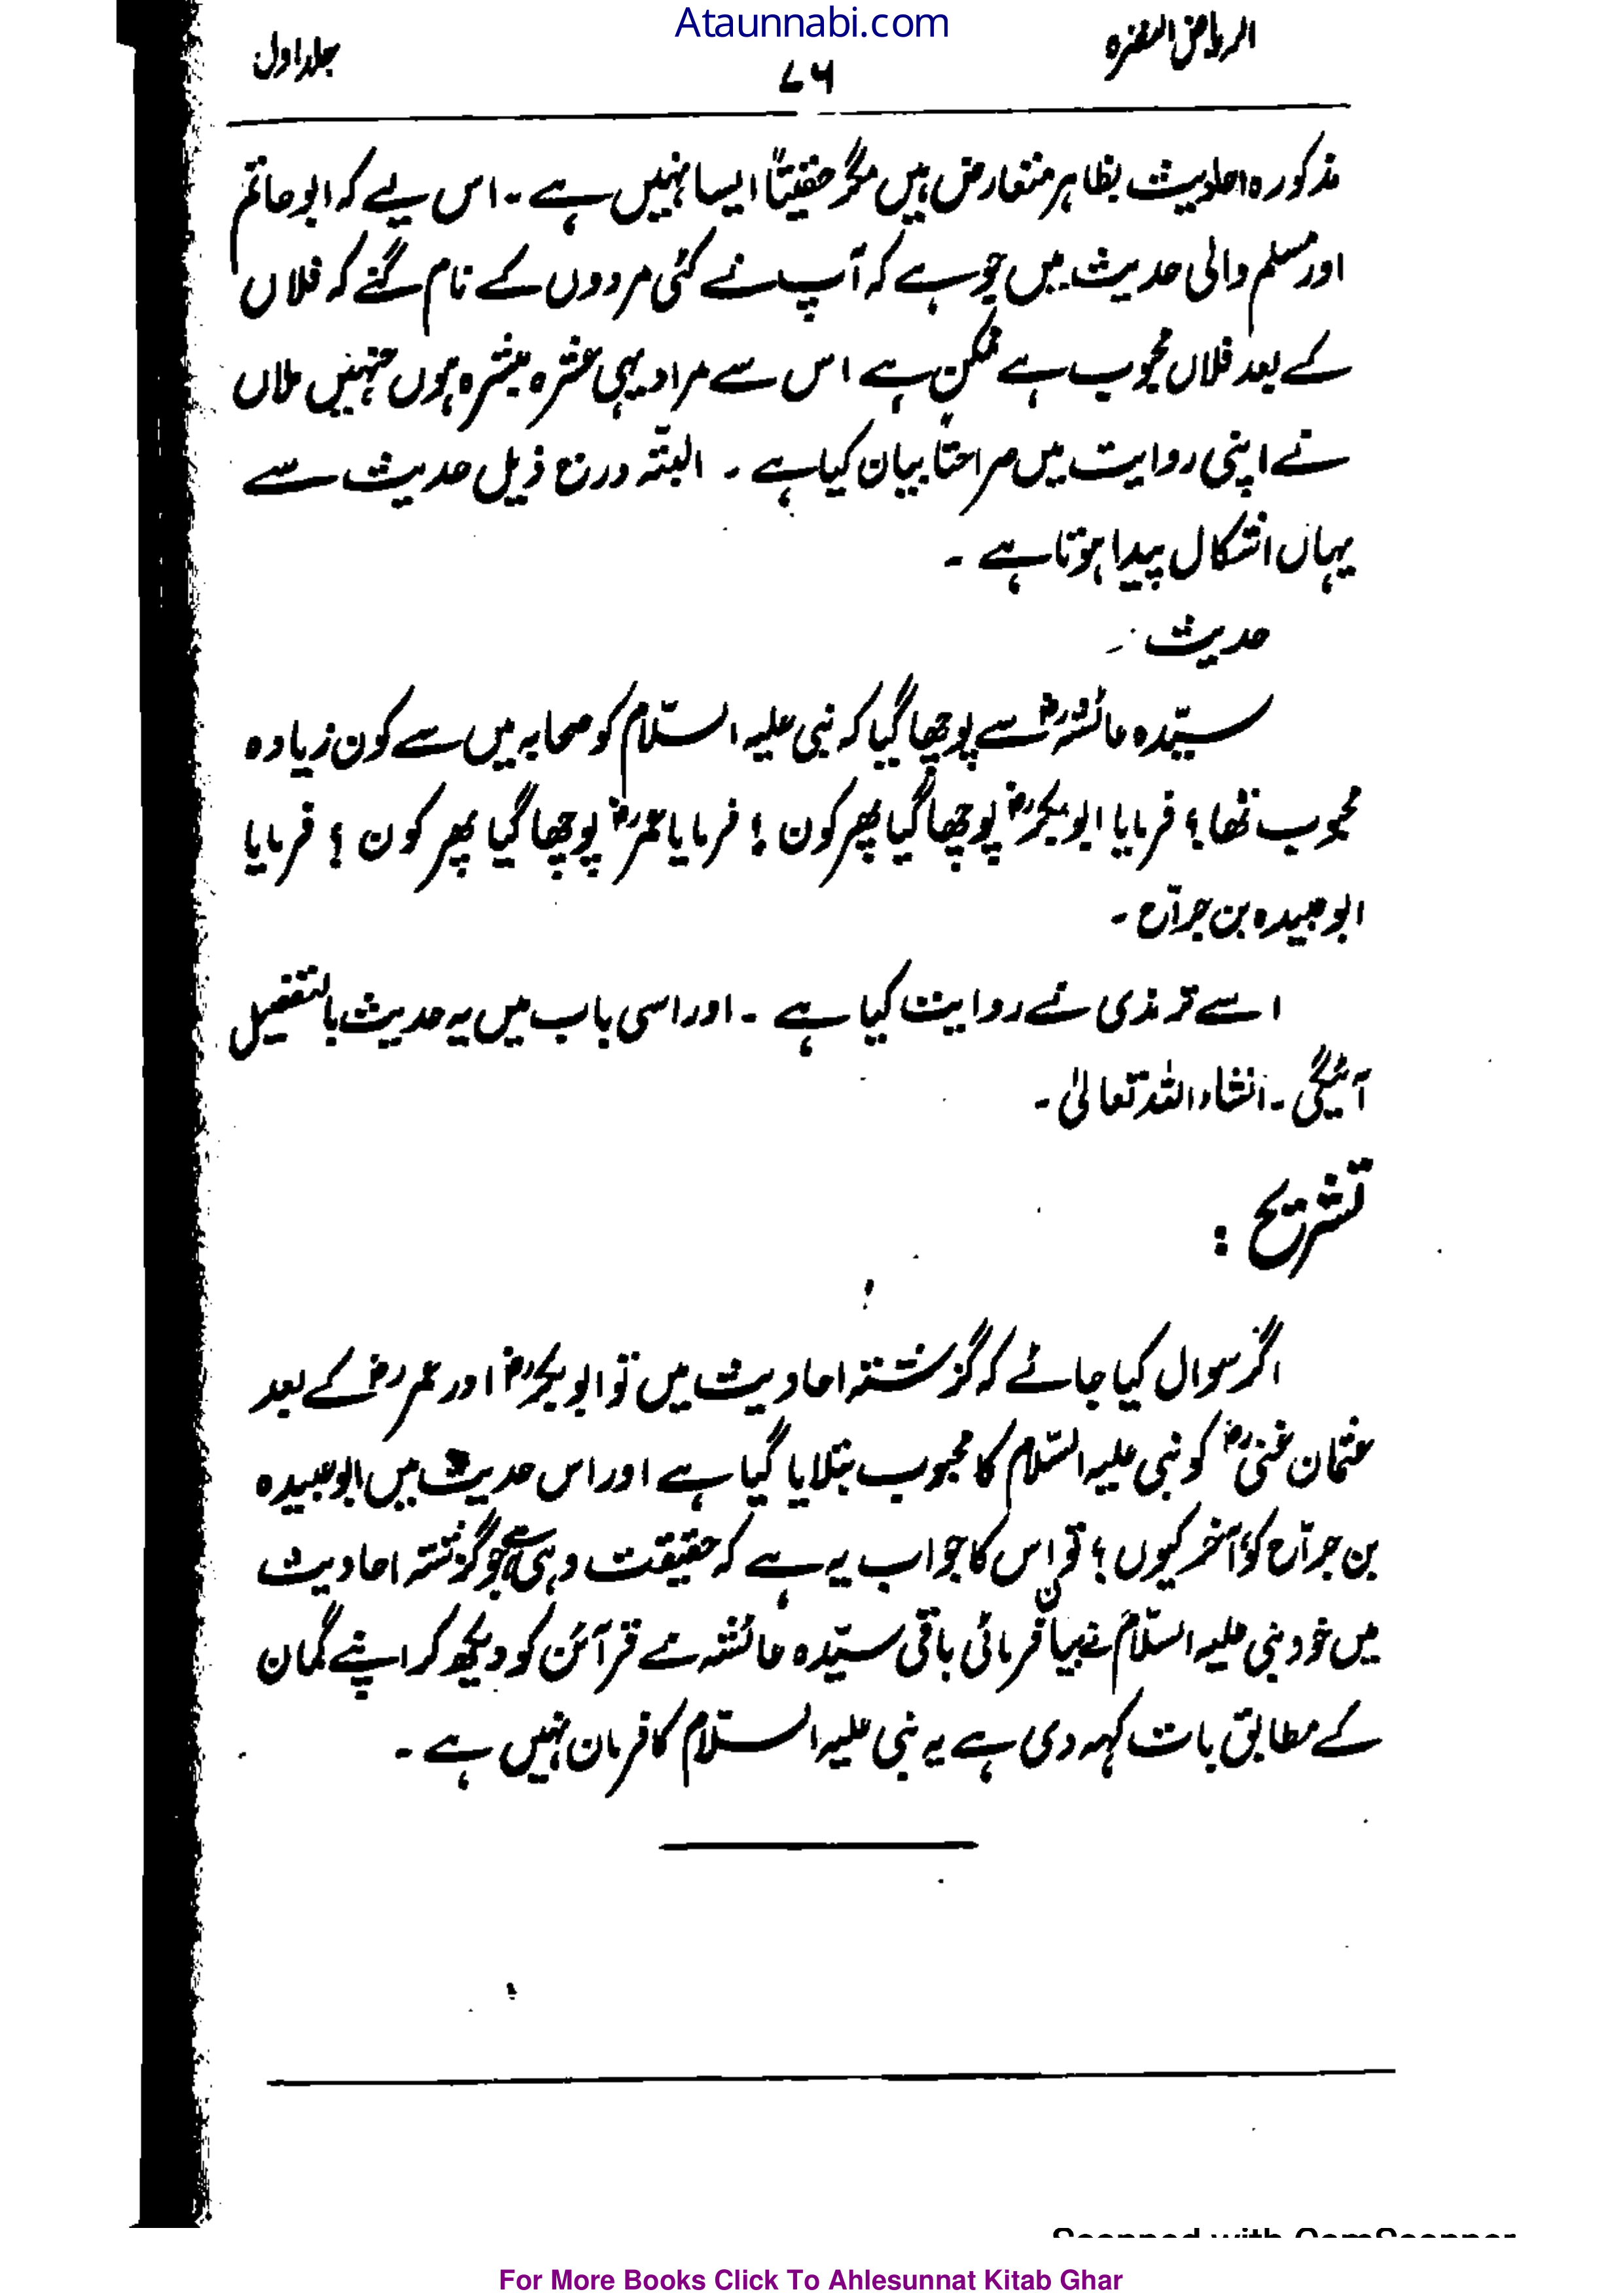 Ataunnabi.com
الریاض النضرہ ۷۶ جلد اول
مذکورہ احادیث بظاہر متعارض ہیں مگر حقیقتاً ایسا نہیں ہے ۔ اس لیے کہ ابو حاتم
اور مسلم والی حدیث میں جو ہے کہ آپ نے کئی مردوں کے نام گنے کہ فلاں
کے بعد فلاں محبوب ہے ممکن ہے اس سے مراد یہی عشرہ مبشرہ ہوں جنہیں ملاں
نے اپنی روایت میں صراحتاً بیان کیا ہے ۔ البتہ درج ذیل حدیث سے
یہاں اشکال پیدا ہوتا ہے ۔
حدیث :۔
سیّدہ عائشہؓ سے پوچھا گیا کہ نبی علیہ السّلام کو صحابہ میں سے کون زیادہ
محبوب تھا؟ فرمایا ابوبکرؓ پوچھا گیا پھر کون ؟ فرمایا عمرؓ پوچھا گیا پھر کون ؟ فرمایا
ابو عبیدہ بن جرّاح ۔
اسے ترمذی نے روایت کیا ہے ۔ اور اسی باب میں یہ حدیث بالتفصیل
آئیگی ۔ انشاء اللہ تعالیٰ ۔
تشریح :
اگر سوال کیا جائے کہ گزشتہ احادیث میں تو ابوبکرؓ اور عمرؓ کے بعد
عثمان غنیؓ کو نبی علیہ السّلام کا محبوب بتلایا گیا ہے اور اس حدیث میں ابو عبیدہ
بن جرّاح کو، آخر کیوں ؟ تو اس کا جواب یہ ہے کہ حقیقت وہی ہے جو گزشتہ احادیث
میں خود نبی علیہ السّلام نے بیان فرمائی باقی سیّدہ عائشہ نے قرآئن کو دیکھ کر اپنے گمان
کے مطابق بات کہہ دی ہے یہ نبی علیہ السّلام کا فرمان نہیں ہے ۔
Scanned with CamScanner
For More Books Click To Ahlesunnat Kitab Ghar